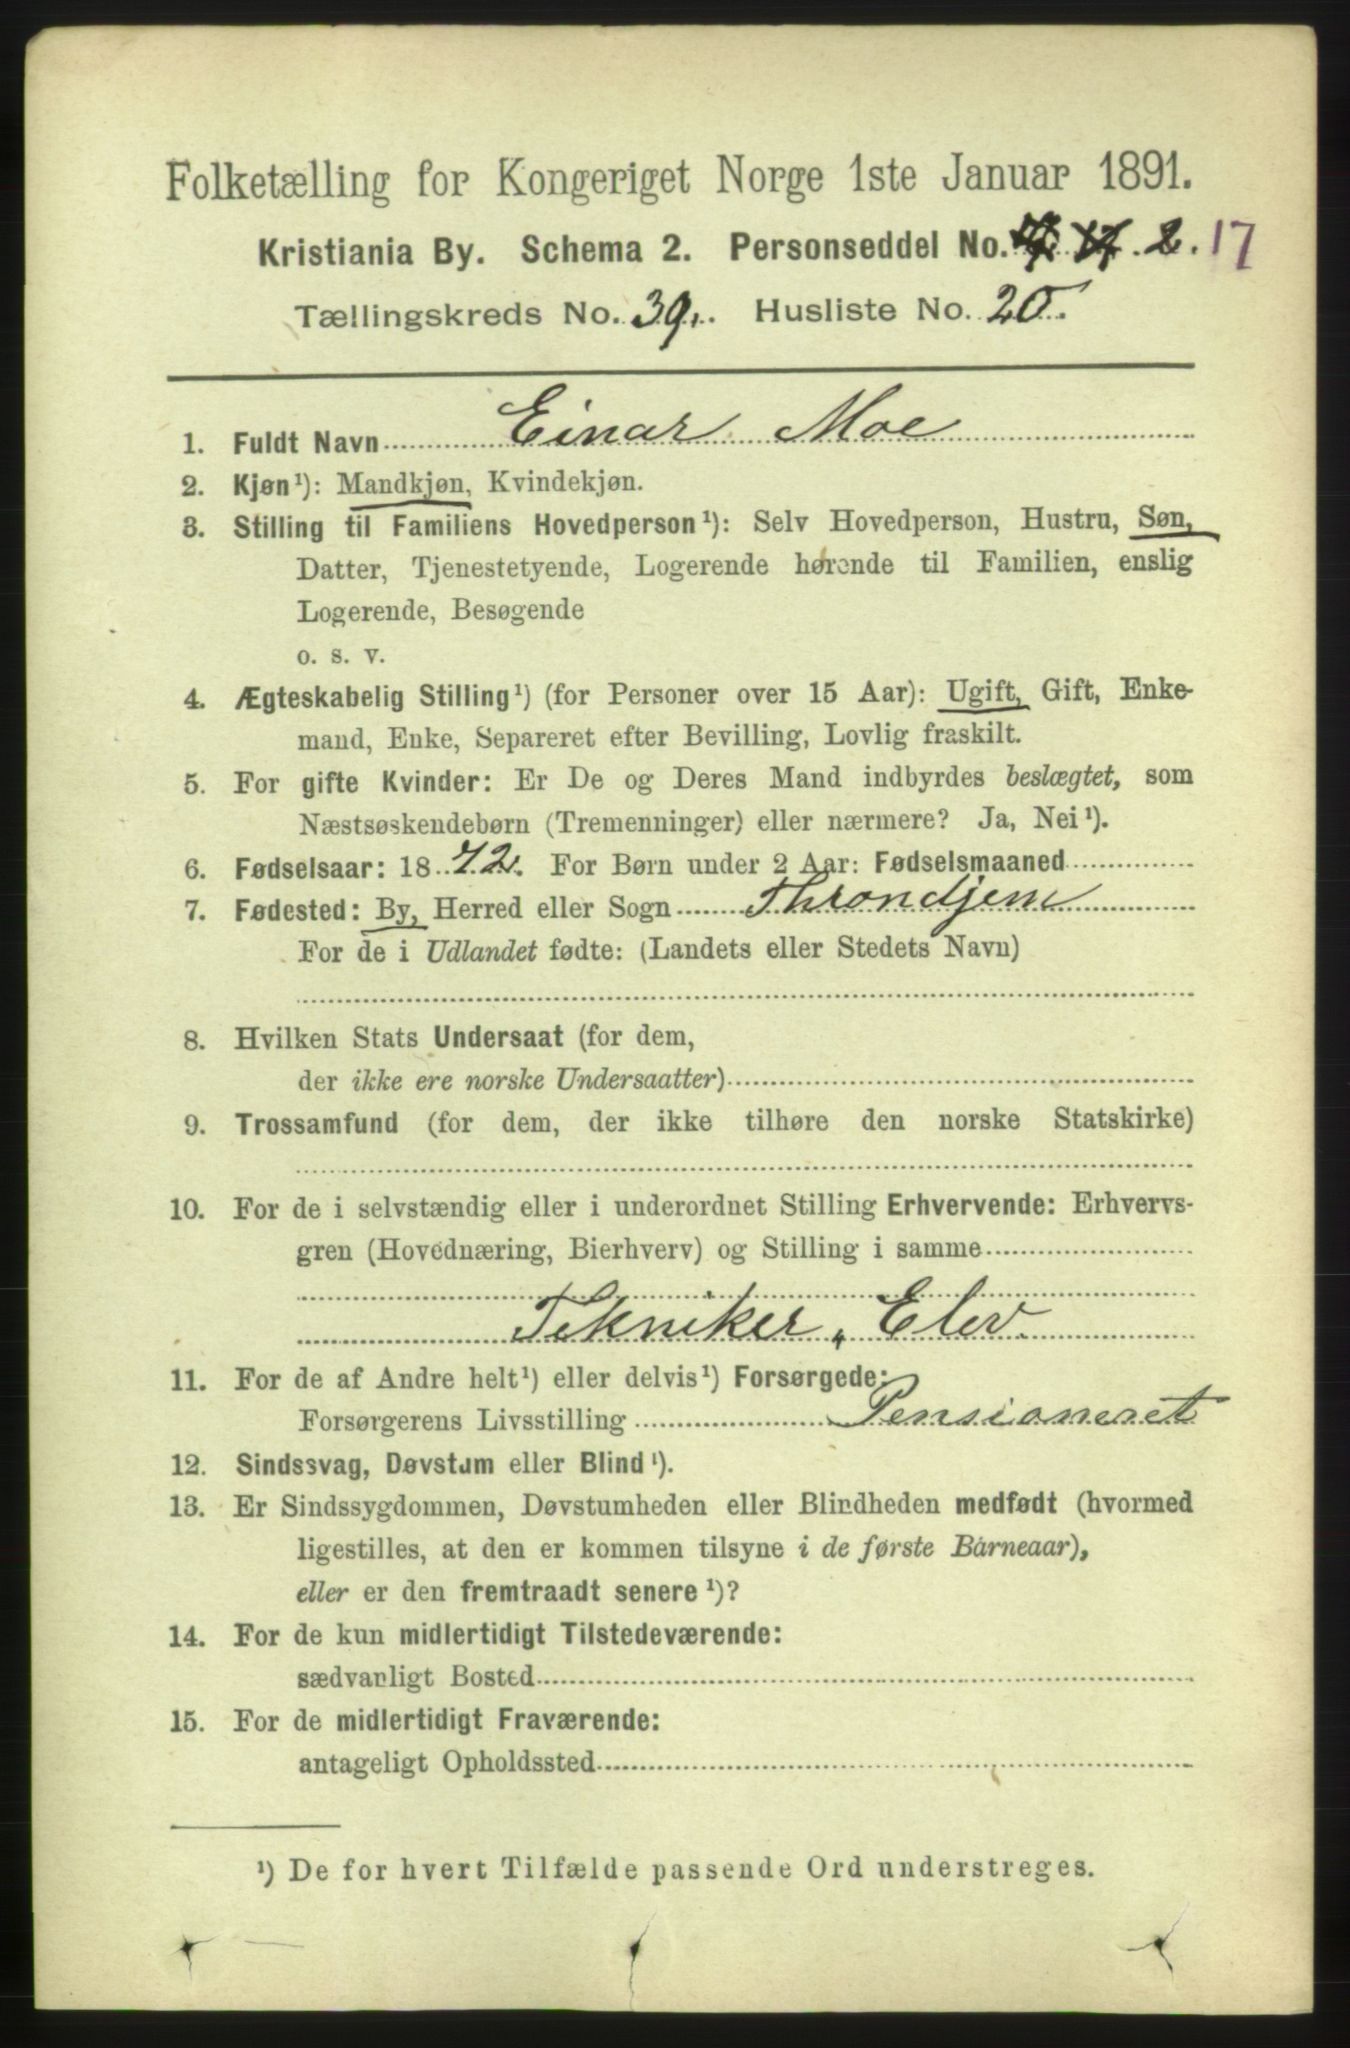 Folketælling for Kongeriget Norge 1ste Januar 1891.
Kristiania By. Schema 2. Personseddel No. 2. 17
Tællingskreds No. 39. Husliste No. 20.
1. Fuldt Navn Einar Moe
2. Kjøn¹): Mandkjøn, Kvindekjøn.
3. Stilling til Familiens Hovedperson¹): Selv Hovedperson, Hustru, Søn,
Datter, Tjenestetyende, Logerende hørende til Familien, enslig
Logerende, Besøgende
o. s. v.
4. Ægteskabelig Stilling¹) (for Personer over 15 Aar): Ugift, Gift, Enke-
mand, Enke, Separeret efter Bevilling, Lovlig fraskilt.
5. For gifte Kvinder: Er De og Deres Mand indbyrdes beslægtet, som
Næstsøskendebørn (Tremenninger) eller nærmere? Ja, Nei¹).
6. Fødselsaar: 1872. For Børn under 2 Aar: Fødselsmaaned
7. Fødested: By, Herred eller Sogn Throndjem
For de i Udlandet fødte: (Landets eller Stedets Navn)
8. Hvilken Stats Undersaat (for dem,
der ikke ere norske Undersaatter)
9. Trossamfund (for dem, der ikke tilhøre den norske Statskirke)
10. For de i selvstændig eller i underordnet Stilling Erhvervende: Erhvervs-
gren (Hovednæring, Bierhverv) og Stilling i samme
Tekniker, Elev.
11. For de af Andre helt¹) eller delvis¹) Forsørgede:
Forsørgerens Livsstilling Pensioneret
12. Sindssvag, Døvstum eller Blind¹).
13. Er Sindssygdommen, Døvstumheden eller Blindheden medfødt (hvormed
ligestilles, at den er kommen tilsyne i de første Barneaar),
eller er den fremtraadt senere¹)?
14. For de kun midlertidigt Tilstedeværende:
sædvanligt Bosted
15. For de midlertidigt Fraværende:
antageligt Opholdssted
¹) De for hvert Tilfælde passende Ord understreges.